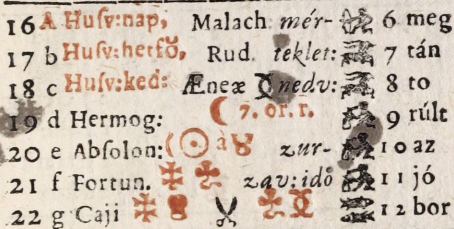 16 A Huſv:nap, Malach mér- 6 meg
17 b Huſv:hetfő, Rud. teklet: 7 tán
18 c Huſv:ked: Æneæ nedv: 8 to
19 d Hermog: ☾ 7. or. r. 9 rúlt
20 e Abſolon: ☉ à ♉ zur- 10 az
21 f Fortun. zav: idő 11 jó
22 g Caji 12 bor